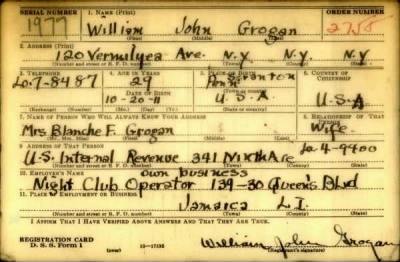 SERIAL NUMBER 1. NAME (Print) ORDER NUMBER
1977 William John Grogan 2758
(First) (Middle) (Last)
2. ADDRESS (Print)
120 Vermilyea Ave. N.Y. N.Y. N.Y
(Number and street or R. F. D. number) (Town) (County) (State)
3. TELEPHONE 4. AGE IN YEARS 5. PLACE OF BIRTH 6. COUNTRY OF CITIZENSHIP
Lo. 7-8487 29 Scranton
DATE OF BIRTH Penn
10-20-11 U.S.A U.S.A
(Exchange) (Number) (Mo.) (Day) (Yr.) (State or country)
7. NAME OF PERSON WHO WILL ALWAYS KNOW YOUR ADDRESS 8. RELATIONSHIP OF THAT PERSON
Mrs Blanche F. Grogan Wife
(Mr., Mrs., Miss) (First) (Middle) (Last)
9. ADDRESS OF THAT PERSON Lo-4-9400
U.S. Internal Revenue 341 Ninth Ave
(Number and street or R. F. D. number) (Town) (County) (State)
10. EMPLOYER'S NAME own business
Night Club Operator 139-30 Queen's Blvd
11. PLACE OF EMPLOYMENT OR BUSINESS
Jamaica L I.
(Number and street or R. F. D. number) (Town) (County) (State)
I AFFIRM THAT I HAVE VERIFIED ABOVE ANSWERS AND THAT THEY ARE TRUE.
REGISTRATION CARD
D. S. S. Form 1 16—17105 William John Grogan
(Registrant's signature)